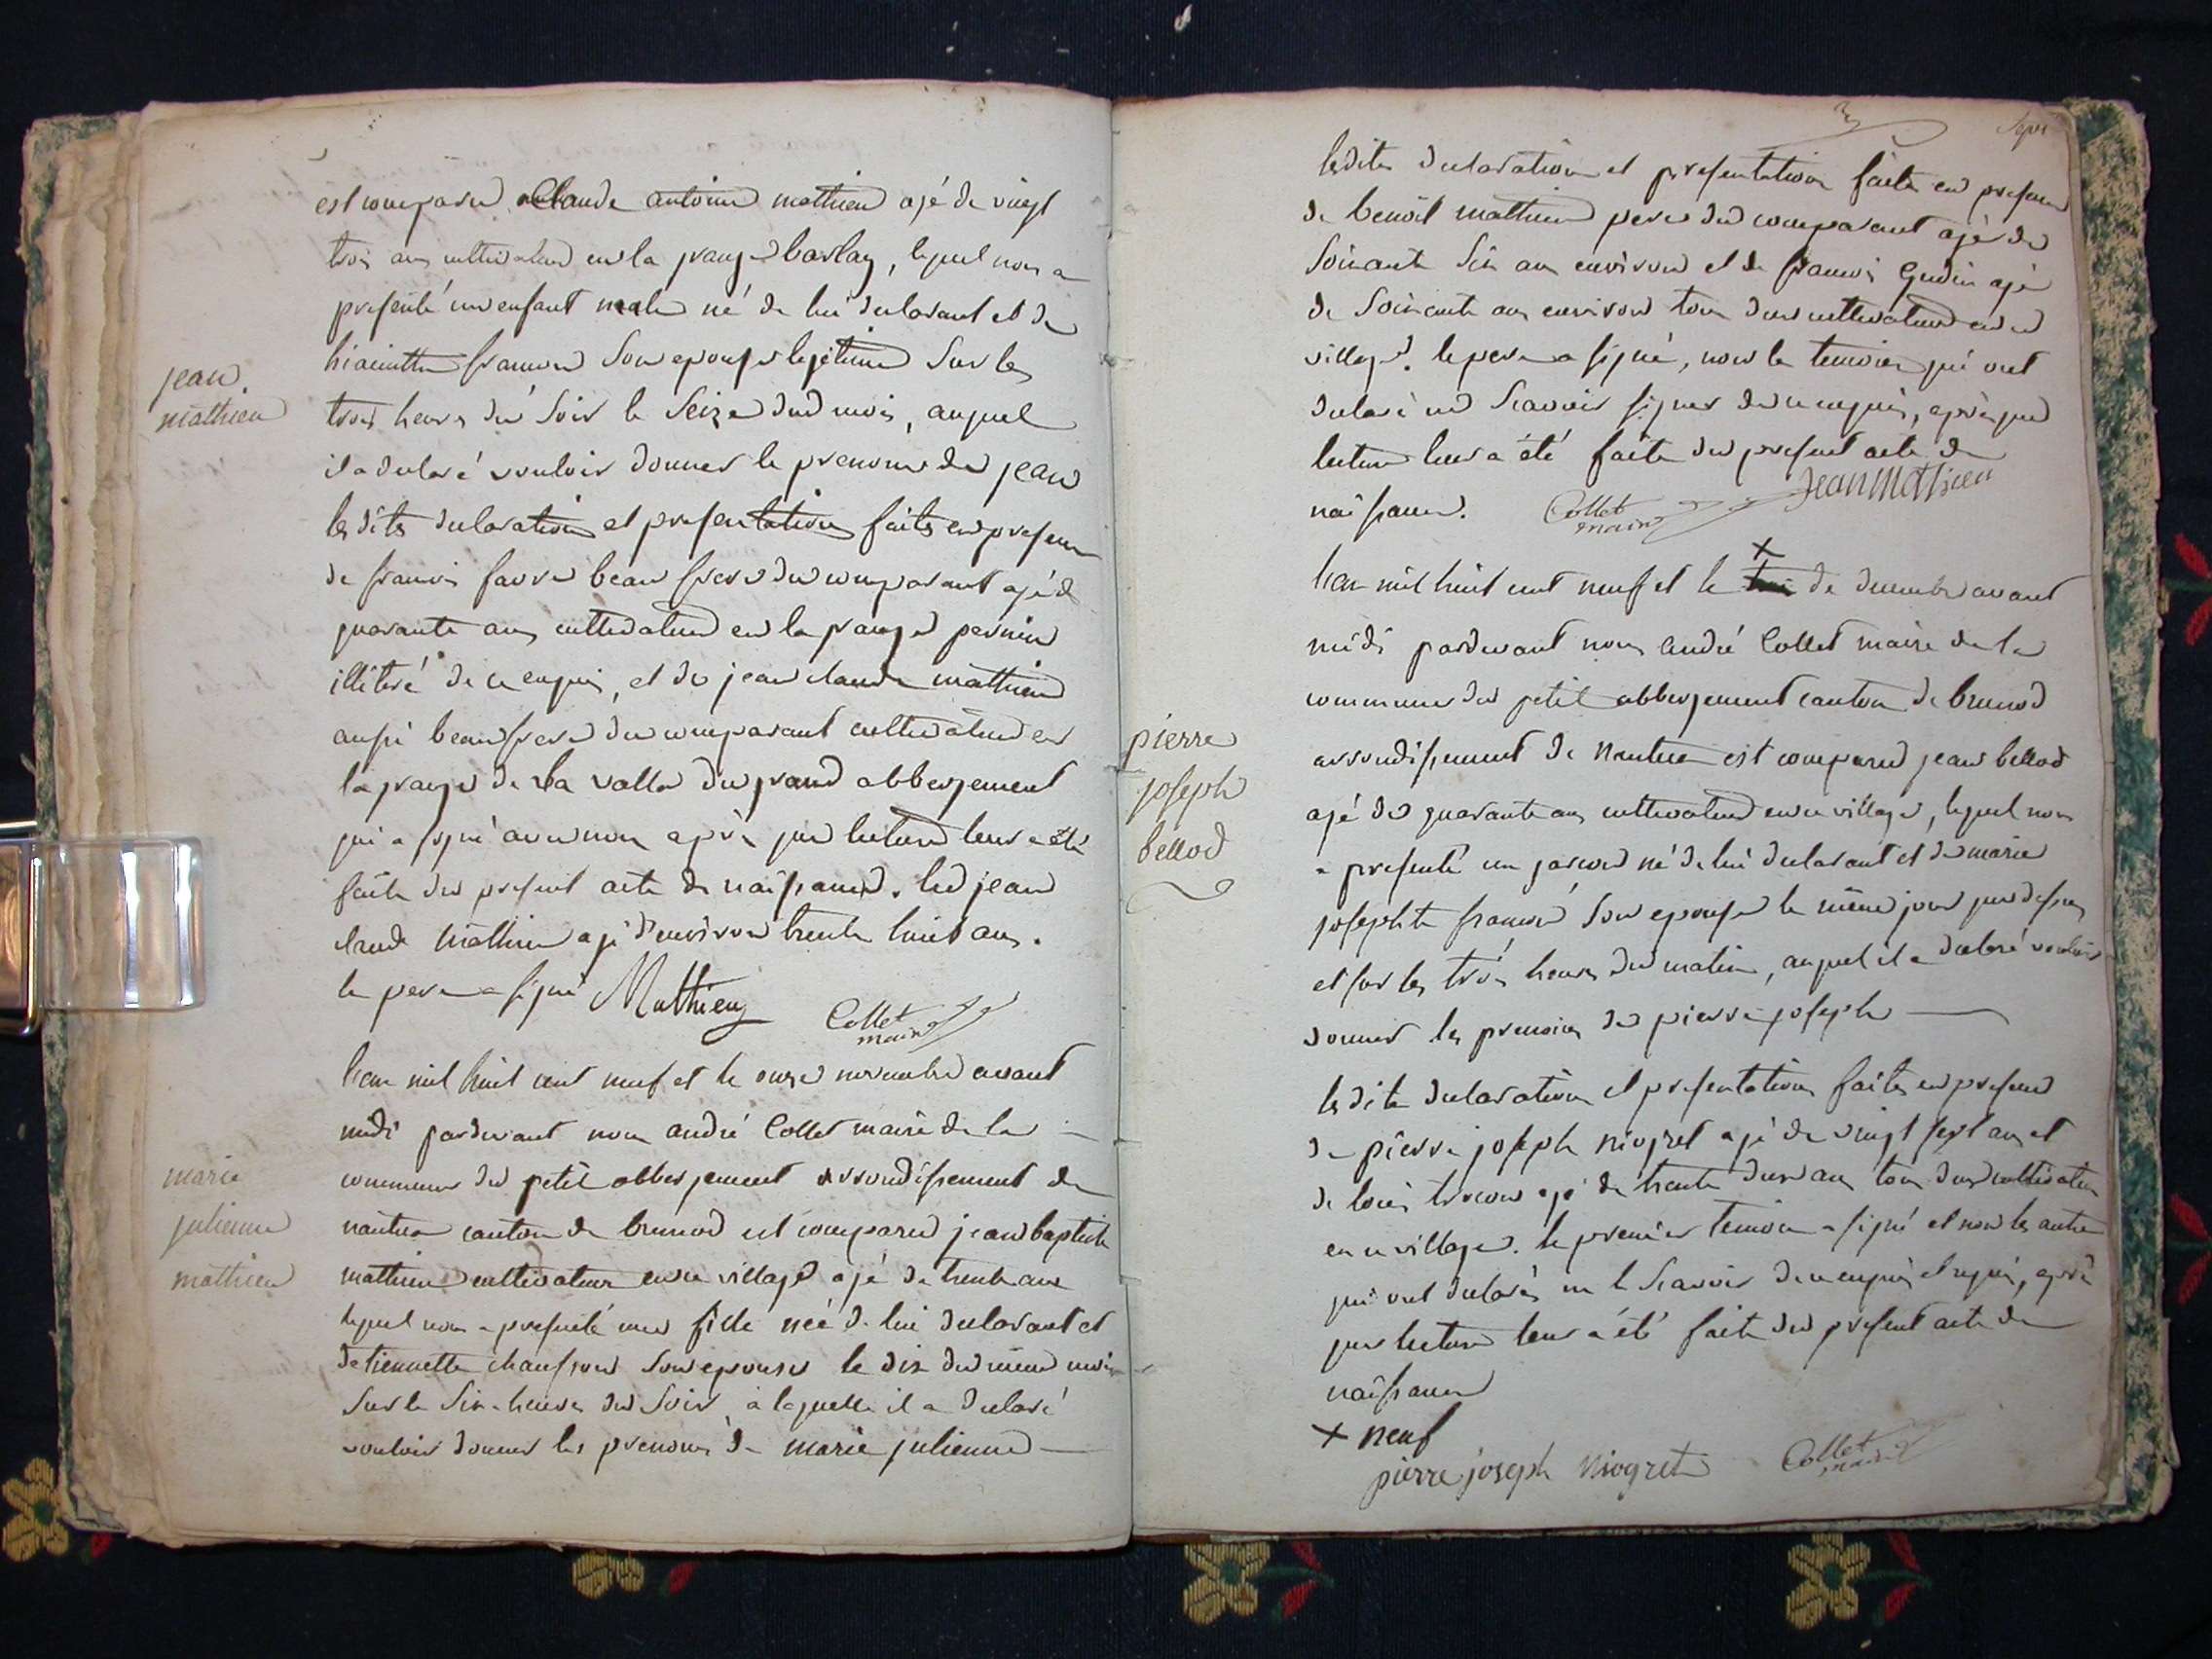 est comparu Claude antoine mathieu agé de vingt
trois ans cultivateur en la grange barlay, lequel nous a
presenté un enfant male né de lui declarant et de
hiacinthe françon son epouse legitime sur les
jean
mathieu
trois heures du soir le seize dud mois, auquel
il a declaré vouloir donner le prenom de jean
les dites declaration et presentation faites en presence
de francois favre beau frere du comparant agé de
quarante ans cultivateur en la grange pernin
illiteré de ce enquis, et de jean claude mathieu
aussi beau frere du comparant cultivateur en
la grange de la valla du grand abbergement
qui a signé avec nous après que lecture leur a été
faite du present acte de naissance. led jean
claude mathieu agé d'environ trente huit ans.
le pere a signé Mathieu
Collet
maire
l'an mil huit cent neuf et le onze novembre avant
midi pardevant nous andré Collet maire de la
marie
julienne
mathieu
commune du petit abbergement arrondissement de
nantua canton de brenod est comparu jean baptiste
mathieu cultivateur en ce village agé de trente ans
lequel nous a presenté une fille neé de lui declarant et
detiennette son epouse le dix du même mois
sur le six heures du soir, à laquelle il a declaré
vouloir donner les prenoms de marie julienne
lesdites declaration et presentation faite en presence
de benoit mathieu pere du comparant agé de
soixante six ans environ et de francois agé
de soixante ans environ tous deux cultivateurs en ce
village. le pere a signé, non le temoins qui ont
declaré ne scavoir signer de ce enquis, après que
lecture leur a été faite du present acte de
naissance. Collet
maire
Jean Mathieu
l'an mil huit cent neuf et le + de decembre avant
midi pardevant nous andré Collet maire de la
commune du petit abbergement canton de brenod
pierre
joseph
bellod
arrondissement de Nantua est comparu jean bellod
agé de quarante ans cultivateur en ce village, lequel nous
a presenté un garcon né de lui declarant et de marie
josephte françon son epouse le même jour que dessus
et sur les trois heures du matin, auquel il a declaré vouloir
donner les prenoms de pierre joseph
les dite declaration et presentation faites en presence
de pierre joseph niogret agé de vingt sept ans et
de louis agé de trente deux ans tous deux cultivateurs
en ce village. le premier temoin a signé et non les autre
qui ont declarés ne le scavoir de ce enquis et requis, après
que lecture leur a été faite du present acte de
naissance
+ neuf
pierre joseph Niogret Collet
maire